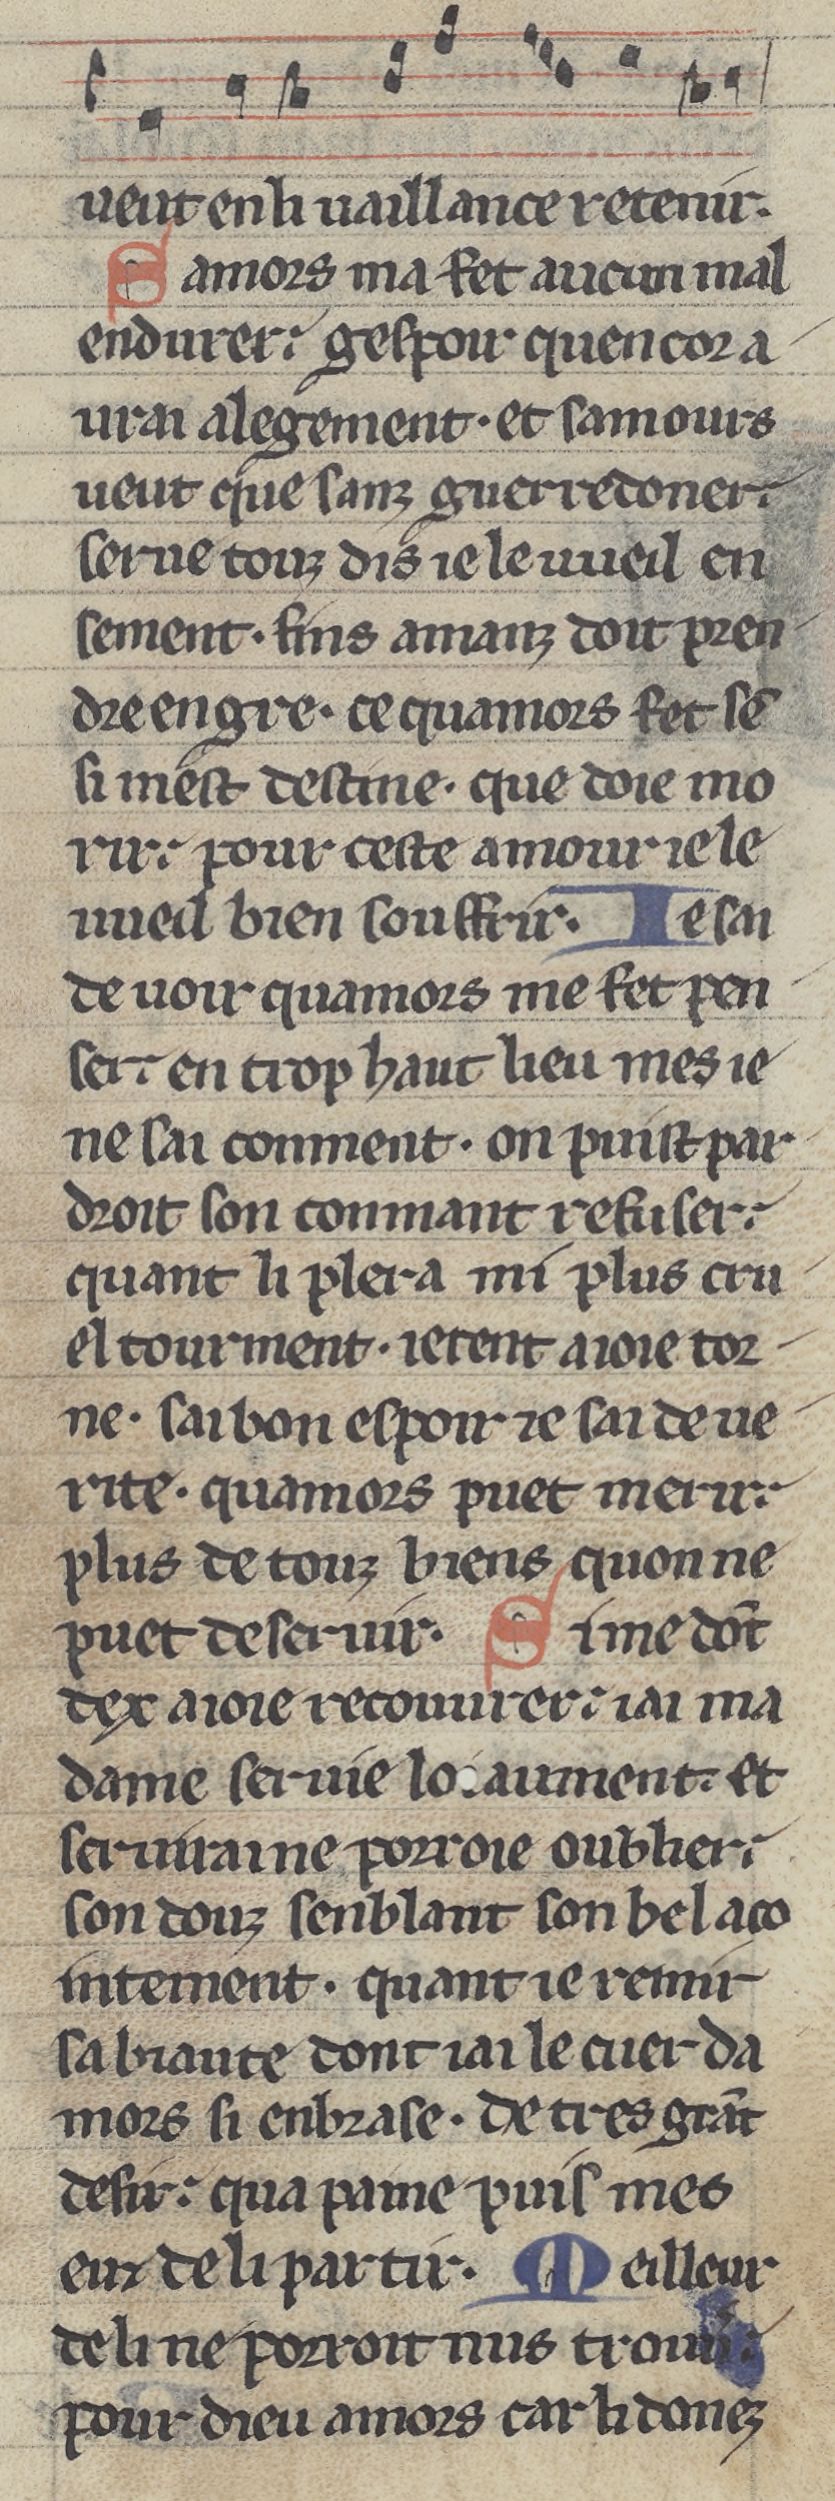 ueut en li uaillance retenir.
S amors ma fet aucun mal
endurer: gespoir quencor a
urai alegement. et samours
ueut que sanz guerredoner:
serue touz dis ie le uueil en
sement. fins amanz doit pren
dre en gre. ce quamors fet se
si mest destine. que doie mo
rir: pour ceste amour ie le
uueil bien souffrir. Ie sai
de uoir quamors me fet pen
ser: en trop haut lieu mes ie
ne sai comment. on puist par
droit son conmant refuser:
quant li plera mi plus cru
el tourment. ietent a ioie tor
ne. sai bon espoir ie sai de ue
rite. quamors puet merir:
plus de touz biens quon ne
puet deseruir. Si me dot̄
dex a ioie recouurer: iai ma
dame seruie loiaument: et
seruirai ne porroie oublier:
son douz senblant son bel aco
intement. quant ie remir
sa biaute dont iai le cuer da
mors si enbrase. de tres grāt
desir: qua paine puis mes
eux de li partir. Meilleur
de li ne porroit nus trouu̾:
pour dieu amors car li donez